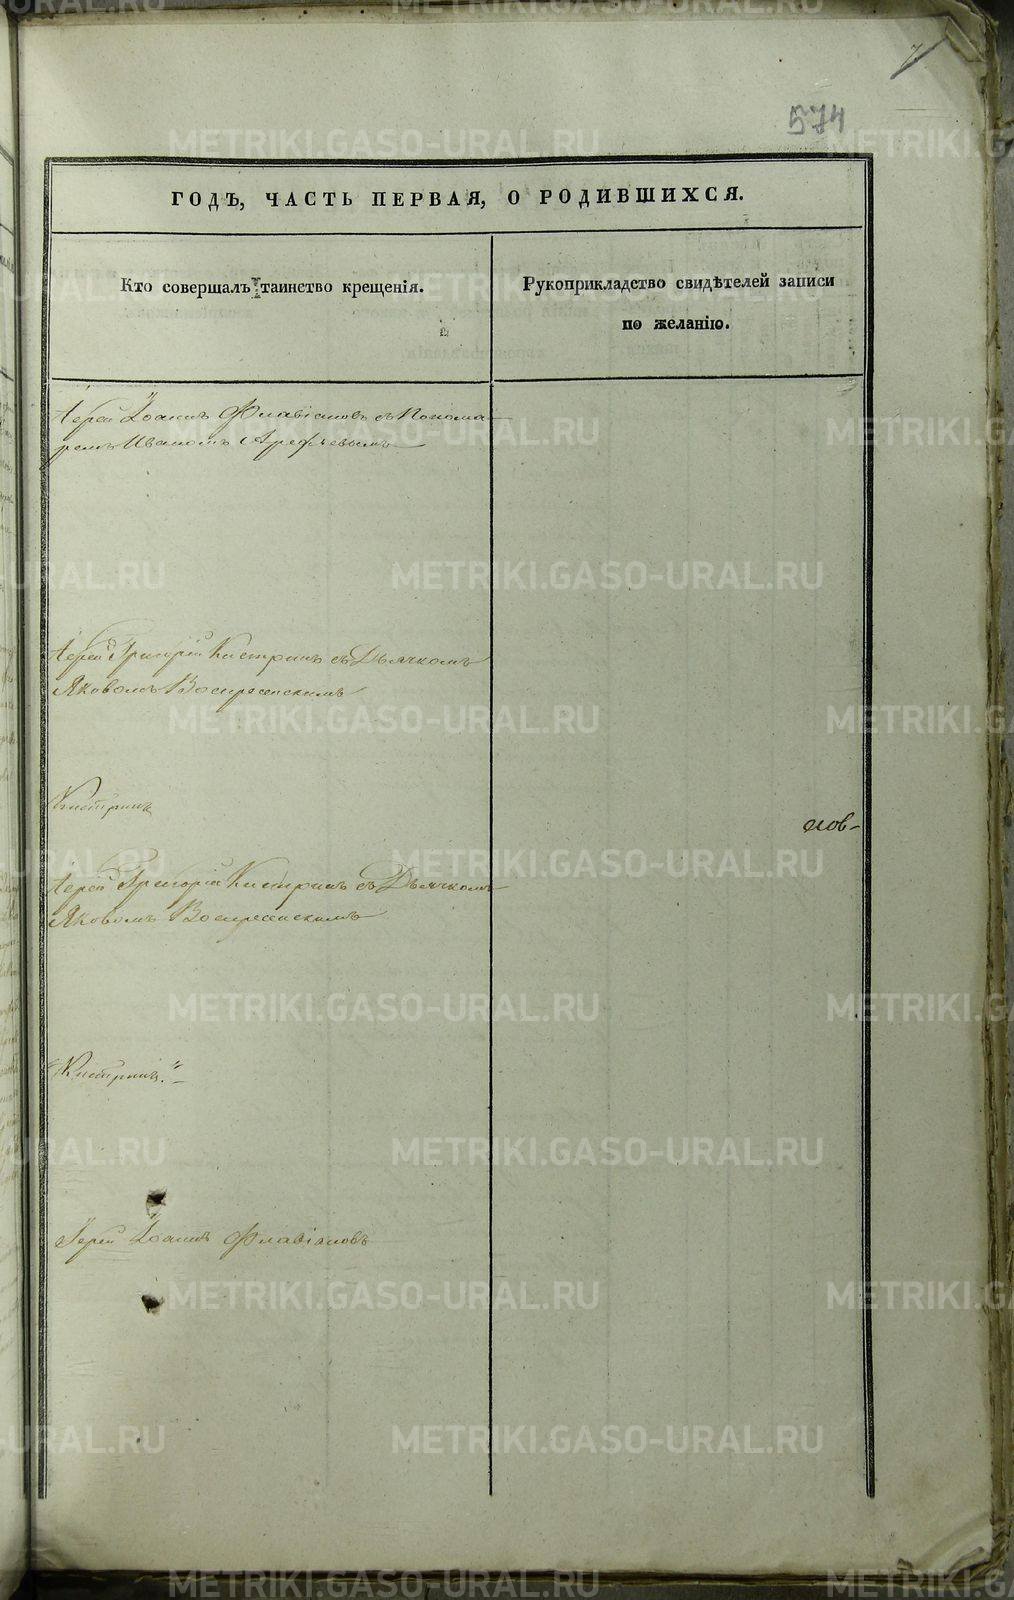 7
574
ГОДЪ, ЧАСТЬ ПЕРВАЯ, О РОДИВШИХСЯ.
Кто совершалъ таинство крещенія.
Рукоприкладство свидѣтелей записи
по желанію.
Іерей Іоаннъ Флавіановъ съ Понома-
ремъ Иваномъ Арефьевымъ
Іерей Григорій Кистринъ съ Дьячкомъ
Яковомъ Воскресенскимъ
Кистринъ
нов-
Іерей Григорій Кистринъ съ Дьячкомъ
Яковомъ Воскресенскимъ
"Кистринъ."
Іерей Іоаннъ Флавіановъ
METRIKI.GASO-URAL.RU